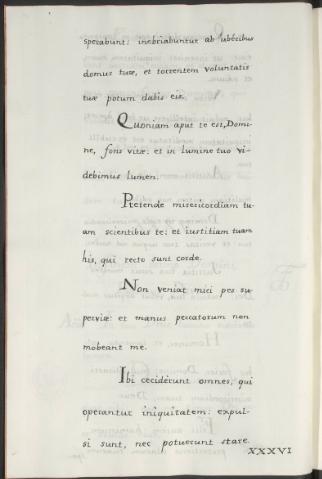 sperabunt: inebriabuntur ab ubéribus
domus tuæ, et torrentem voluntatis
tuæ potum dabis eis.
Quoniam aput te est, Domi-
ne, fons vitæ: et in lumine tuo vi-
debimus lumen.
Pretende misericordiam tu-
am scientibus te: et iustitiam tuam
his, qui recto sunt corde.
Non veniat mici pes su-
perviæ: et manus peccatorum non
mobeant me.
Ibi cecidérunt omnes, qui
operantur iniquitatem: expul-
si sunt, nec potuerunt stare.
XXXVI